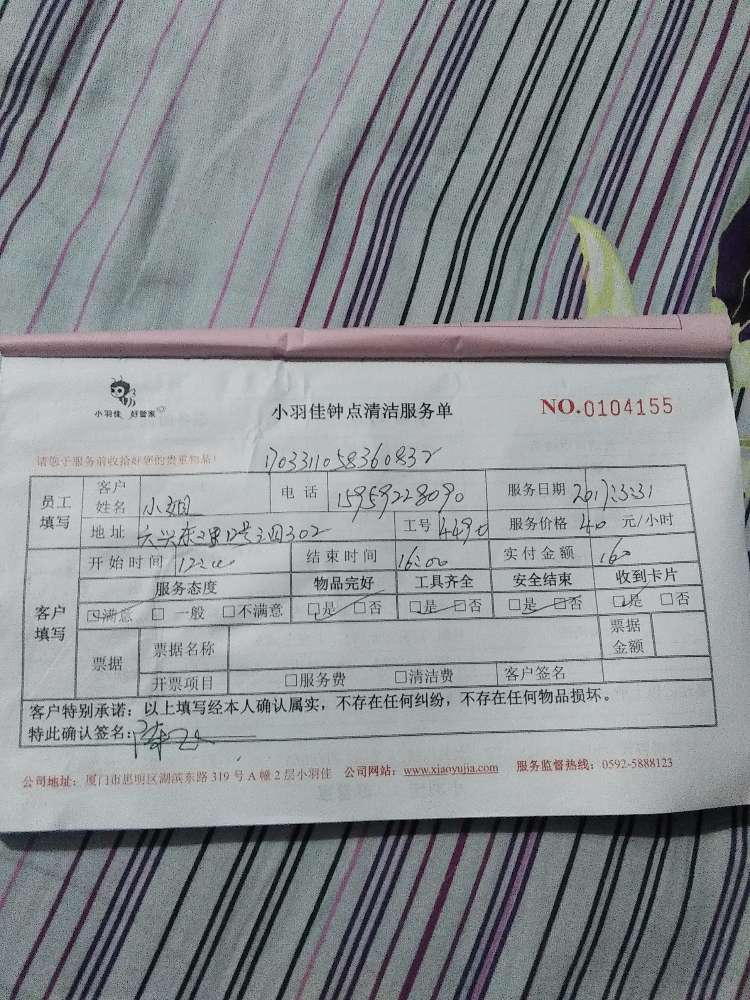 小羽佳 好管家
小羽佳钟点清洁服务单
NO.0104155
请您于服务前收拾好您的贵重物品！
170331105836083२
员工填写
客户姓名 小姐 电话 15959228090 服务日期 2017.3.31
地址 六兴东二里12号之四302 工号 服务价格 40 元/小时
客户填写
开始时间 12:00 结束时间 16:00 实付金额 160
服务态度 物品完好 工具齐全 安全结束 收到卡片
☑满意 □一般 □不满意 □是 □否 □是 □否 □是 □否 □是 □否
票据 票据名称 票据金额
开票项目 □服务费 □清洁费 客户签名
客户特别承诺：以上填写经本人确认属实，不存在任何纠纷，不存在任何物品损坏。
特此确认签名：
公司地址：厦门市思明区湖滨东路 319 号 A 幢 2 层小羽佳 公司网站：www.xiaoyujia.com 服务监督热线：0592-5888123